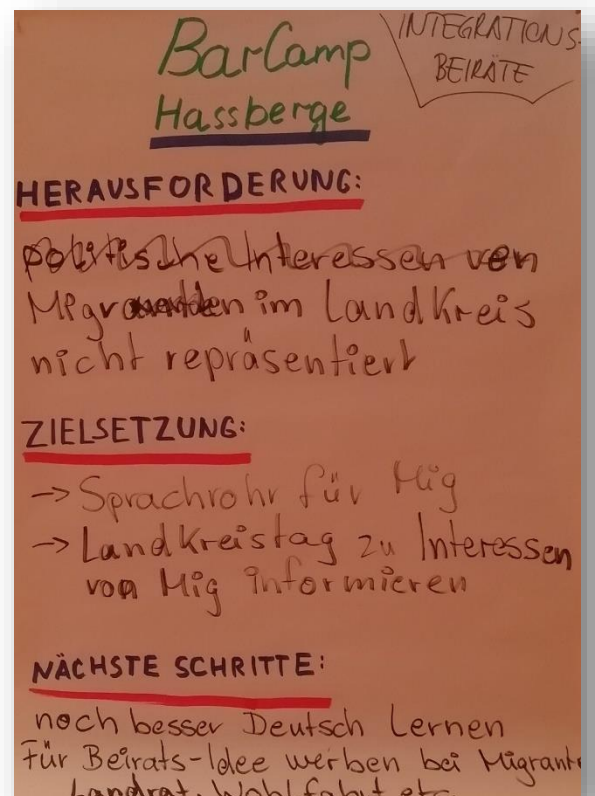 BarCamp
Hassberge
INTEGRATIONS-
BEIRÄTE
HERAUSFORDERUNG:
politische Interessen von
Migranten im Landkreis
nicht repräsentiert
ZIELSETZUNG:
-> Sprachrohr für Mig
-> Landkreistag zu Interessen
von Mig informieren
NÄCHSTE SCHRITTE:
noch besser Deutsch Lernen
Für Beirats-Idee werben bei Migrante
Landrat, Wohlfahrt etc.